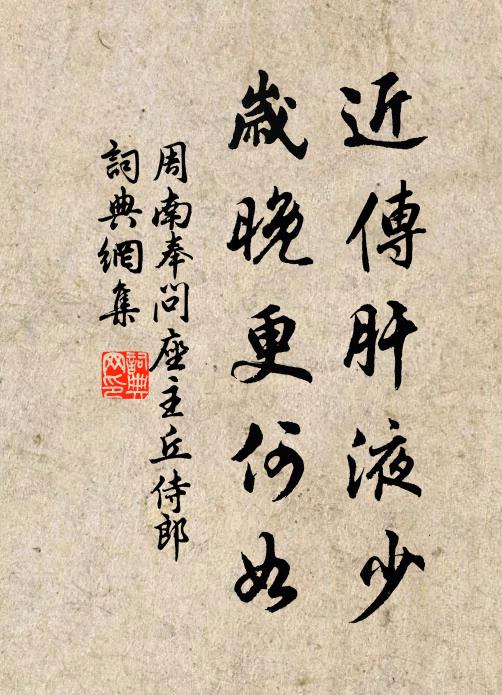 近傳肝液少
歲晚更何如
周南奉問座主丘侍郎
詞典網集
詞典
网印